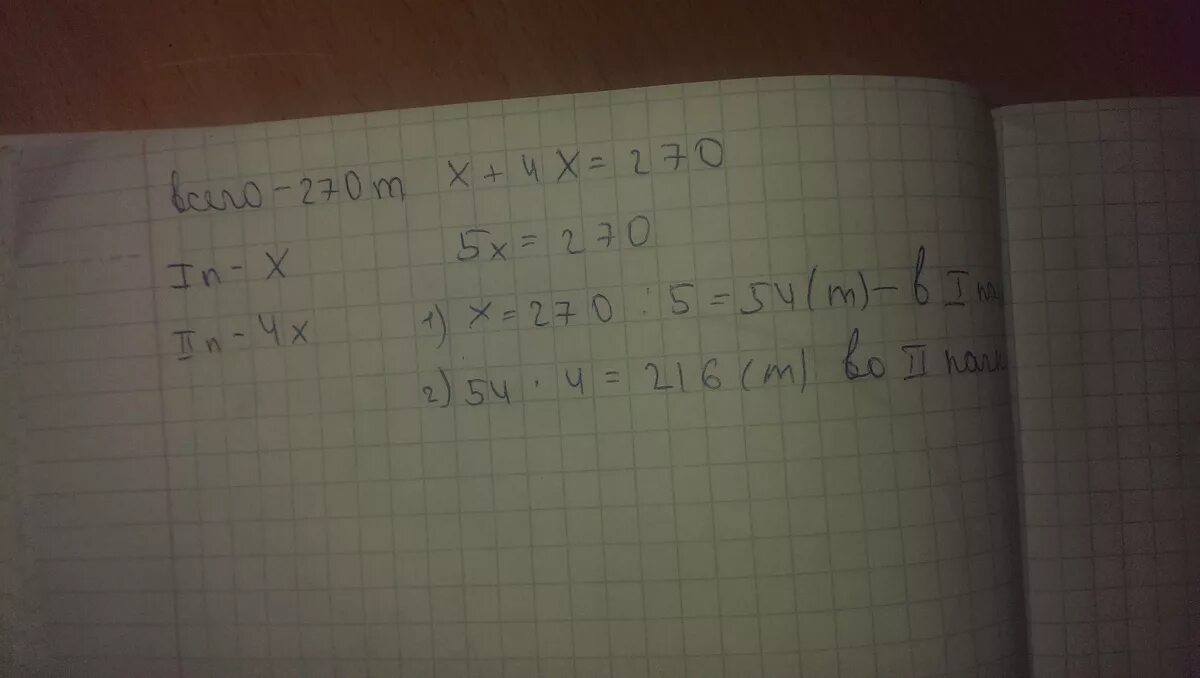 всего - 270 т
I п - x
II п - 4x
x + 4x = 270
5x = 270
1) x = 270 : 5 = 54 (т) - в I
2) 54 · 4 = 216 (т) во II